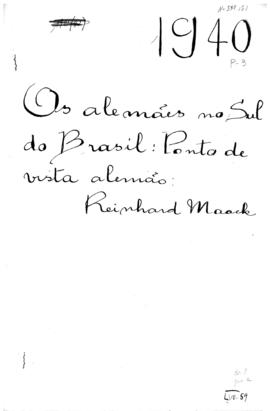 1940
P-3
Os alemães no Sul
do Brasil: Ponto de
vista alemão:
Reinhard Maack